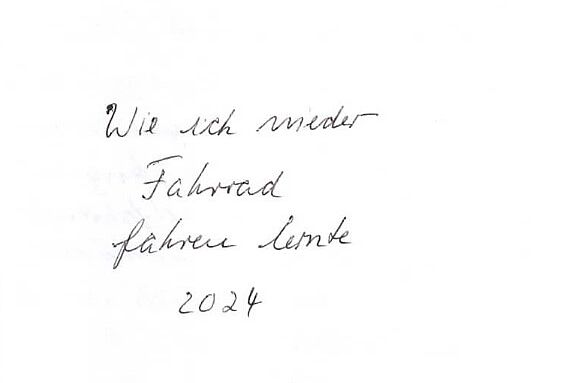 Wie ich wieder
Fahrrad
fahren lernte
2024